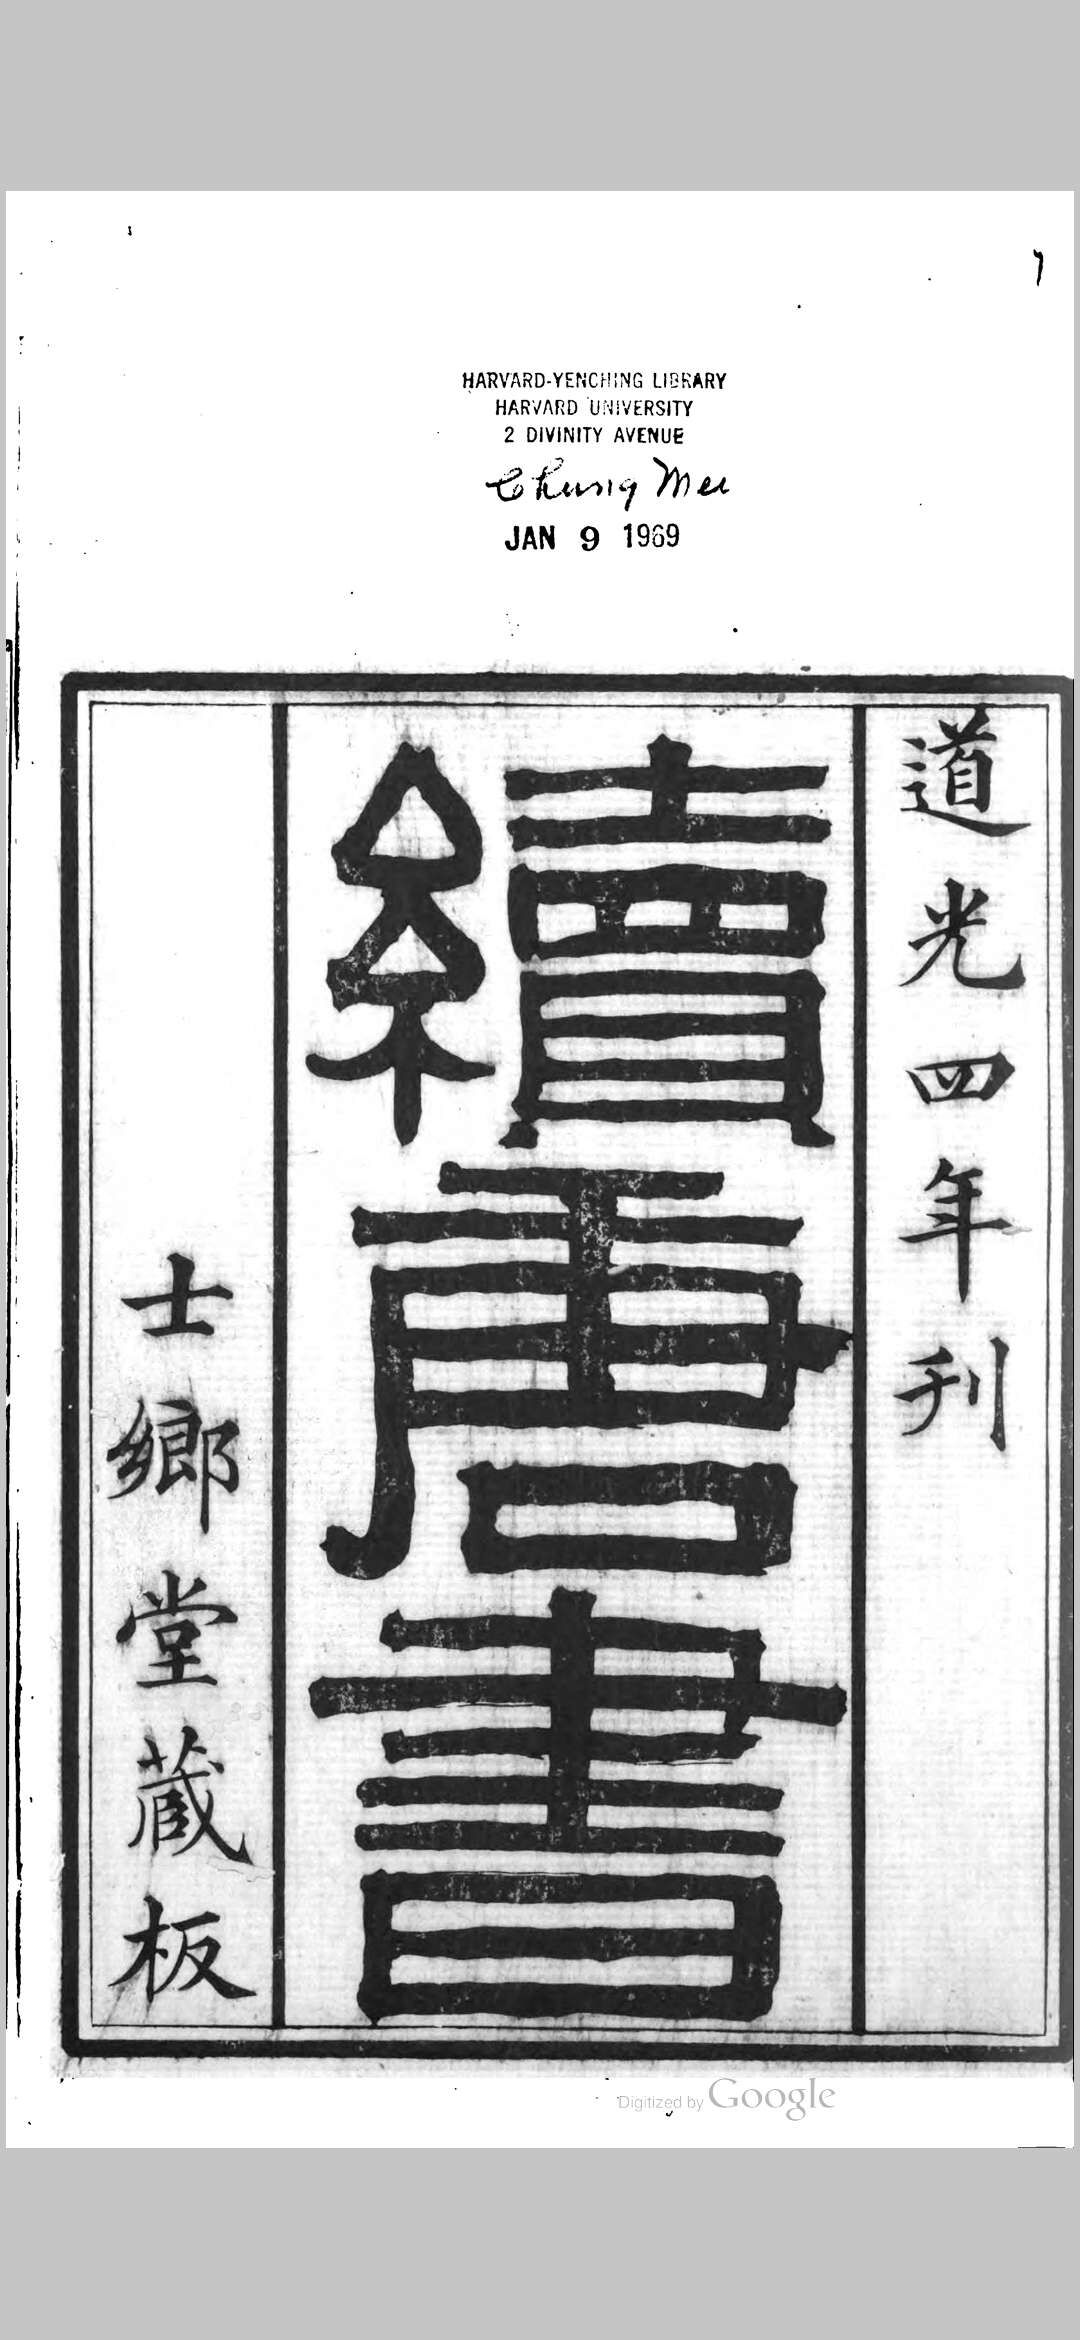 HARVARD-YENCHING LIBRARY
HARVARD UNIVERSITY
2 DIVINITY AVENUE
Chung Mei
JAN 9 1969
道光四年刊
續唐書
士鄉堂藏板
Digitized by Google